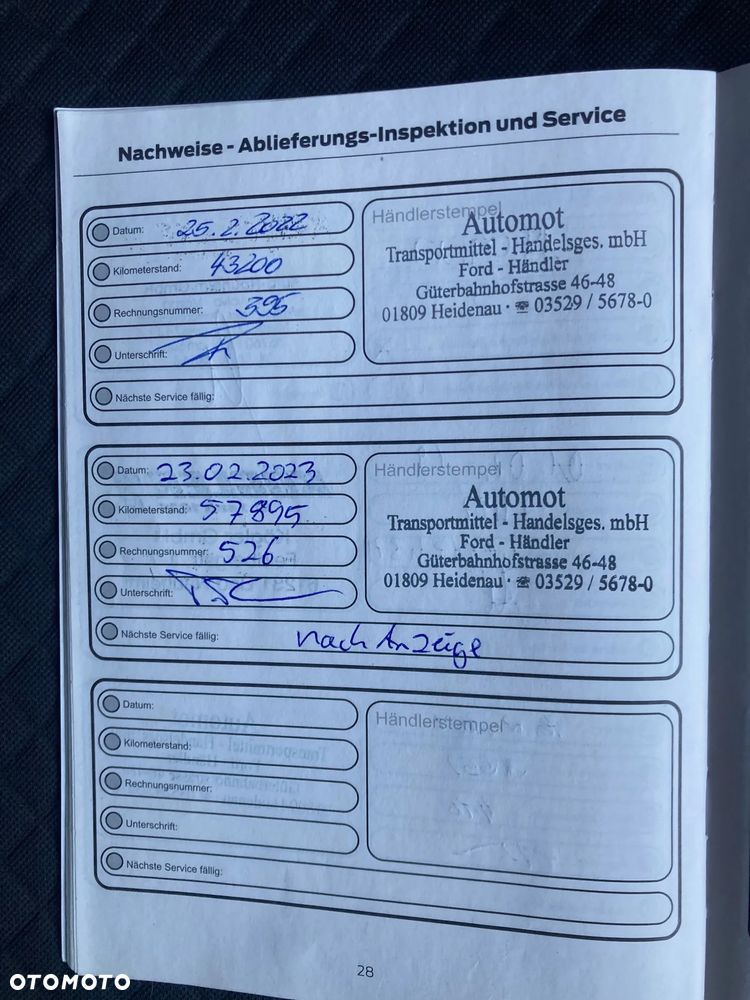 Nachweise - Ablieferungs-Inspektion und Service
Datum: 25.2.2022
Kilometerstand: 43200
Rechnungsnummer: 395
Unterschrift:
Nächste Service fällig:
Händlerstempel
Automot
Transportmittel - Handelsges. mbH
Ford - Händler
Güterbahnhofstrasse 46-48
01809 Heidenau · ☎ 03529 / 5678-0
Datum: 23.02.2023
Kilometerstand: 57895
Rechnungsnummer: 526
Unterschrift:
Nächste Service fällig: nach Anzeige
Händlerstempel
Automot
Transportmittel - Handelsges. mbH
Ford - Händler
Güterbahnhofstrasse 46-48
01809 Heidenau · ☎ 03529 / 5678-0
Datum:
Kilometerstand:
Rechnungsnummer:
Unterschrift:
Nächste Service fällig:
Händlerstempel
28
OTOMOTO